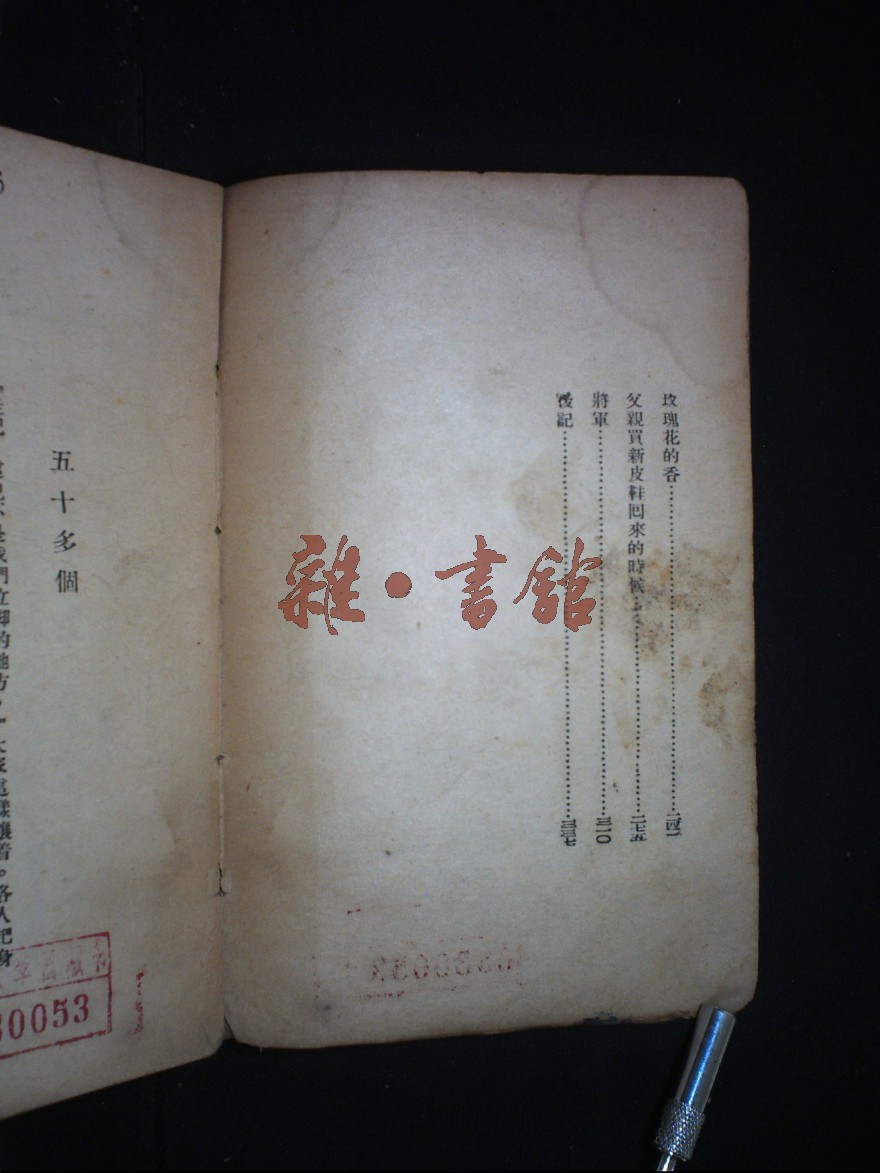 玫瑰花的香……二四二
父親買新皮鞋回來的時候……二七五
將軍……三一〇
後記……三三七
雜·書館
五十多個
是我們立脚的地方。」大家這樣嚷着。各人把身
30053